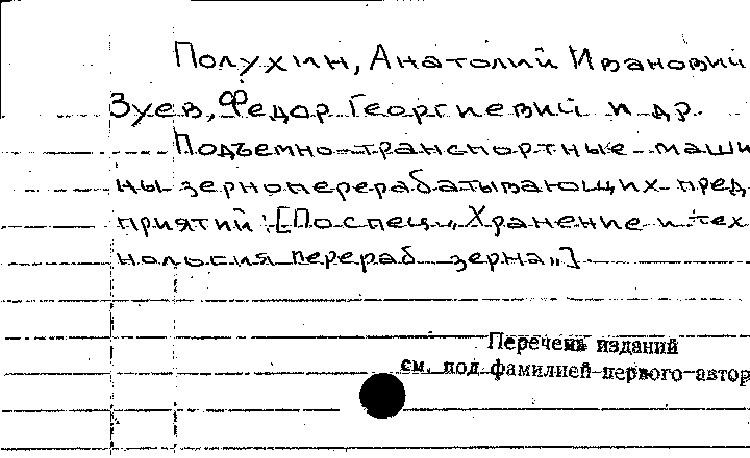 Полухин, Анатолий Иванович
Зуев, Федор Георгиевич и др.
Подъемно-транспортные маши
ны зерноперерабатывающих пред
приятий: [По спец. „Хранение и тех
нология перераб. зерна„]
Перечень изданий
см. под фамилией первого автор